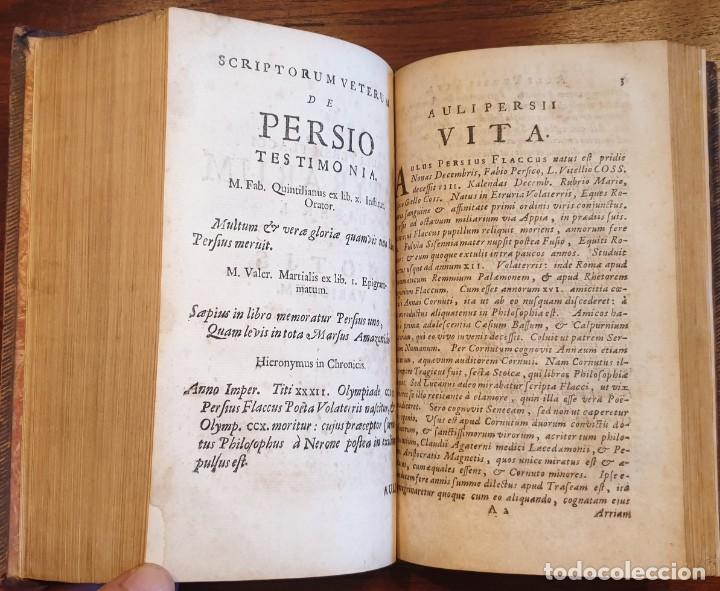 SCRIPTORUM VETERUM
DE
PERSIO
TESTIMONIA.
M. Fab. Quintilianus ex lib. x. Institut.
Orator.
Multum & veræ gloriæ quamvis
Persius meruit.
M. Valer. Martialis ex lib. 1. Epigram-
matum.
Sæpius in libro memoratur Persius uno,
Quam levis in tota Marsus
Hieronymus in Chronicis.
Anno Imper. Titi XXXII. Olympiade
Persius Flaccus Poeta Volaterris nascitur,
Olymp. CCX. moritur: cujus præceptor
tus Philosophus à Nerone postea in
pulsus est.
AULI
3
AULI PERSII
VITA.
AULUS PERSIUS FLACCUS natus est pridie
Nonas Decembris, Fabio Persico, L. Vitellio COSS.
decessit IIII. Kalendas Decemb. Rubrio Mario,
Gallo Coss. Natus in Etruria Volaterris, Eques Ro-
sanguine & affinitate primi ordinis viris conjunctus.
ad octavum miliarium via Appia, in prædiis suis.
Flaccus pupillum reliquit moriens, annorum fere
Fulvia Sisennia mater nupsit postea Fusio, Equiti Ro-
& eum quoque extulit intra paucos annos. Studuit
usque ad annum XII. Volaterris: inde Romæ apud
Remmium Palæmonem, & apud Rhetorem
Flaccum. Cum esset annorum XVI. amicitia cœ-
Annæi Cornuti, ita ut ab eo nusquam discederet: à
ductus aliquatenus in Philosophia est. Amicos ha-
prima adolescentia Cæsium Bassum, & Calpurnium
juvenis decessit. Coluit ut patrem Ser-
Numanum. Per Cornutum cognovit Annæum etiam
æquævum auditorem Cornuti. Nam Cornutus
Tragicus fuit, secta Stoica, qui libros Philosophiæ
Sed Lucanus adeo mirabatur scripta Flacci, ut vix
illo recitante à clamore, quin illa esse vera Poe-
diceret. Sero cognovit Senecam, sed non ut caperetur
ingenio. Usus est apud Cornutum duorum convictu do-
& sanctissimorum virorum, acriter tum philo-
Claudii Agaterni medici Lacedæmonii, & Pe-
Aristocratis Magnetis, quos unice miratus est & æ-
cum æquales essent, & Cornuto minores. Ipse e-
decem fere annis summe dilectus apud Traseam est, ita
quoque cum eo aliquando, cognatam ejus
A 2
Arriam
todocoleccion.net